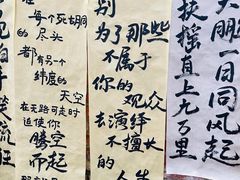 每个死胡同
的尽头
都有另一个
纬度的
天空
在无路可走时
迫使你
腾空
而起
别
为了那些
不属于
你的观众
去演绎
不擅长
的人生
大鹏一日同风起
扶摇直上九万里